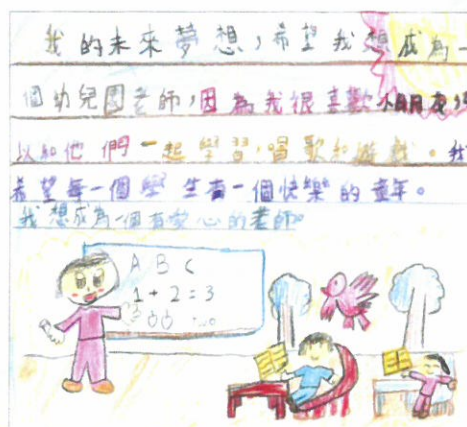 我的未來夢想，希望我想成為一
個幼兒園老師，因為我很喜歡小朋友，
以和他們一起學習，唱歌和遊戲。我
希望每一個學生有一個快樂的童年。
我想成為一個有愛心的老師。
A B C
1 + 2 = 3
two